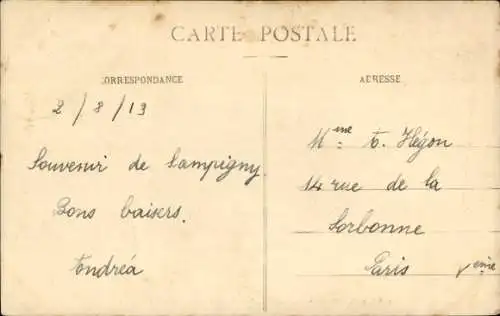 CARTE POSTALE
CORRESPONDANCE
ADRESSE
2/8/13
Souvenir de Sampigny.
Bons baisers.
Andréa
Mme A. Hégon
14 rue de la
Sorbonne
Paris Veme